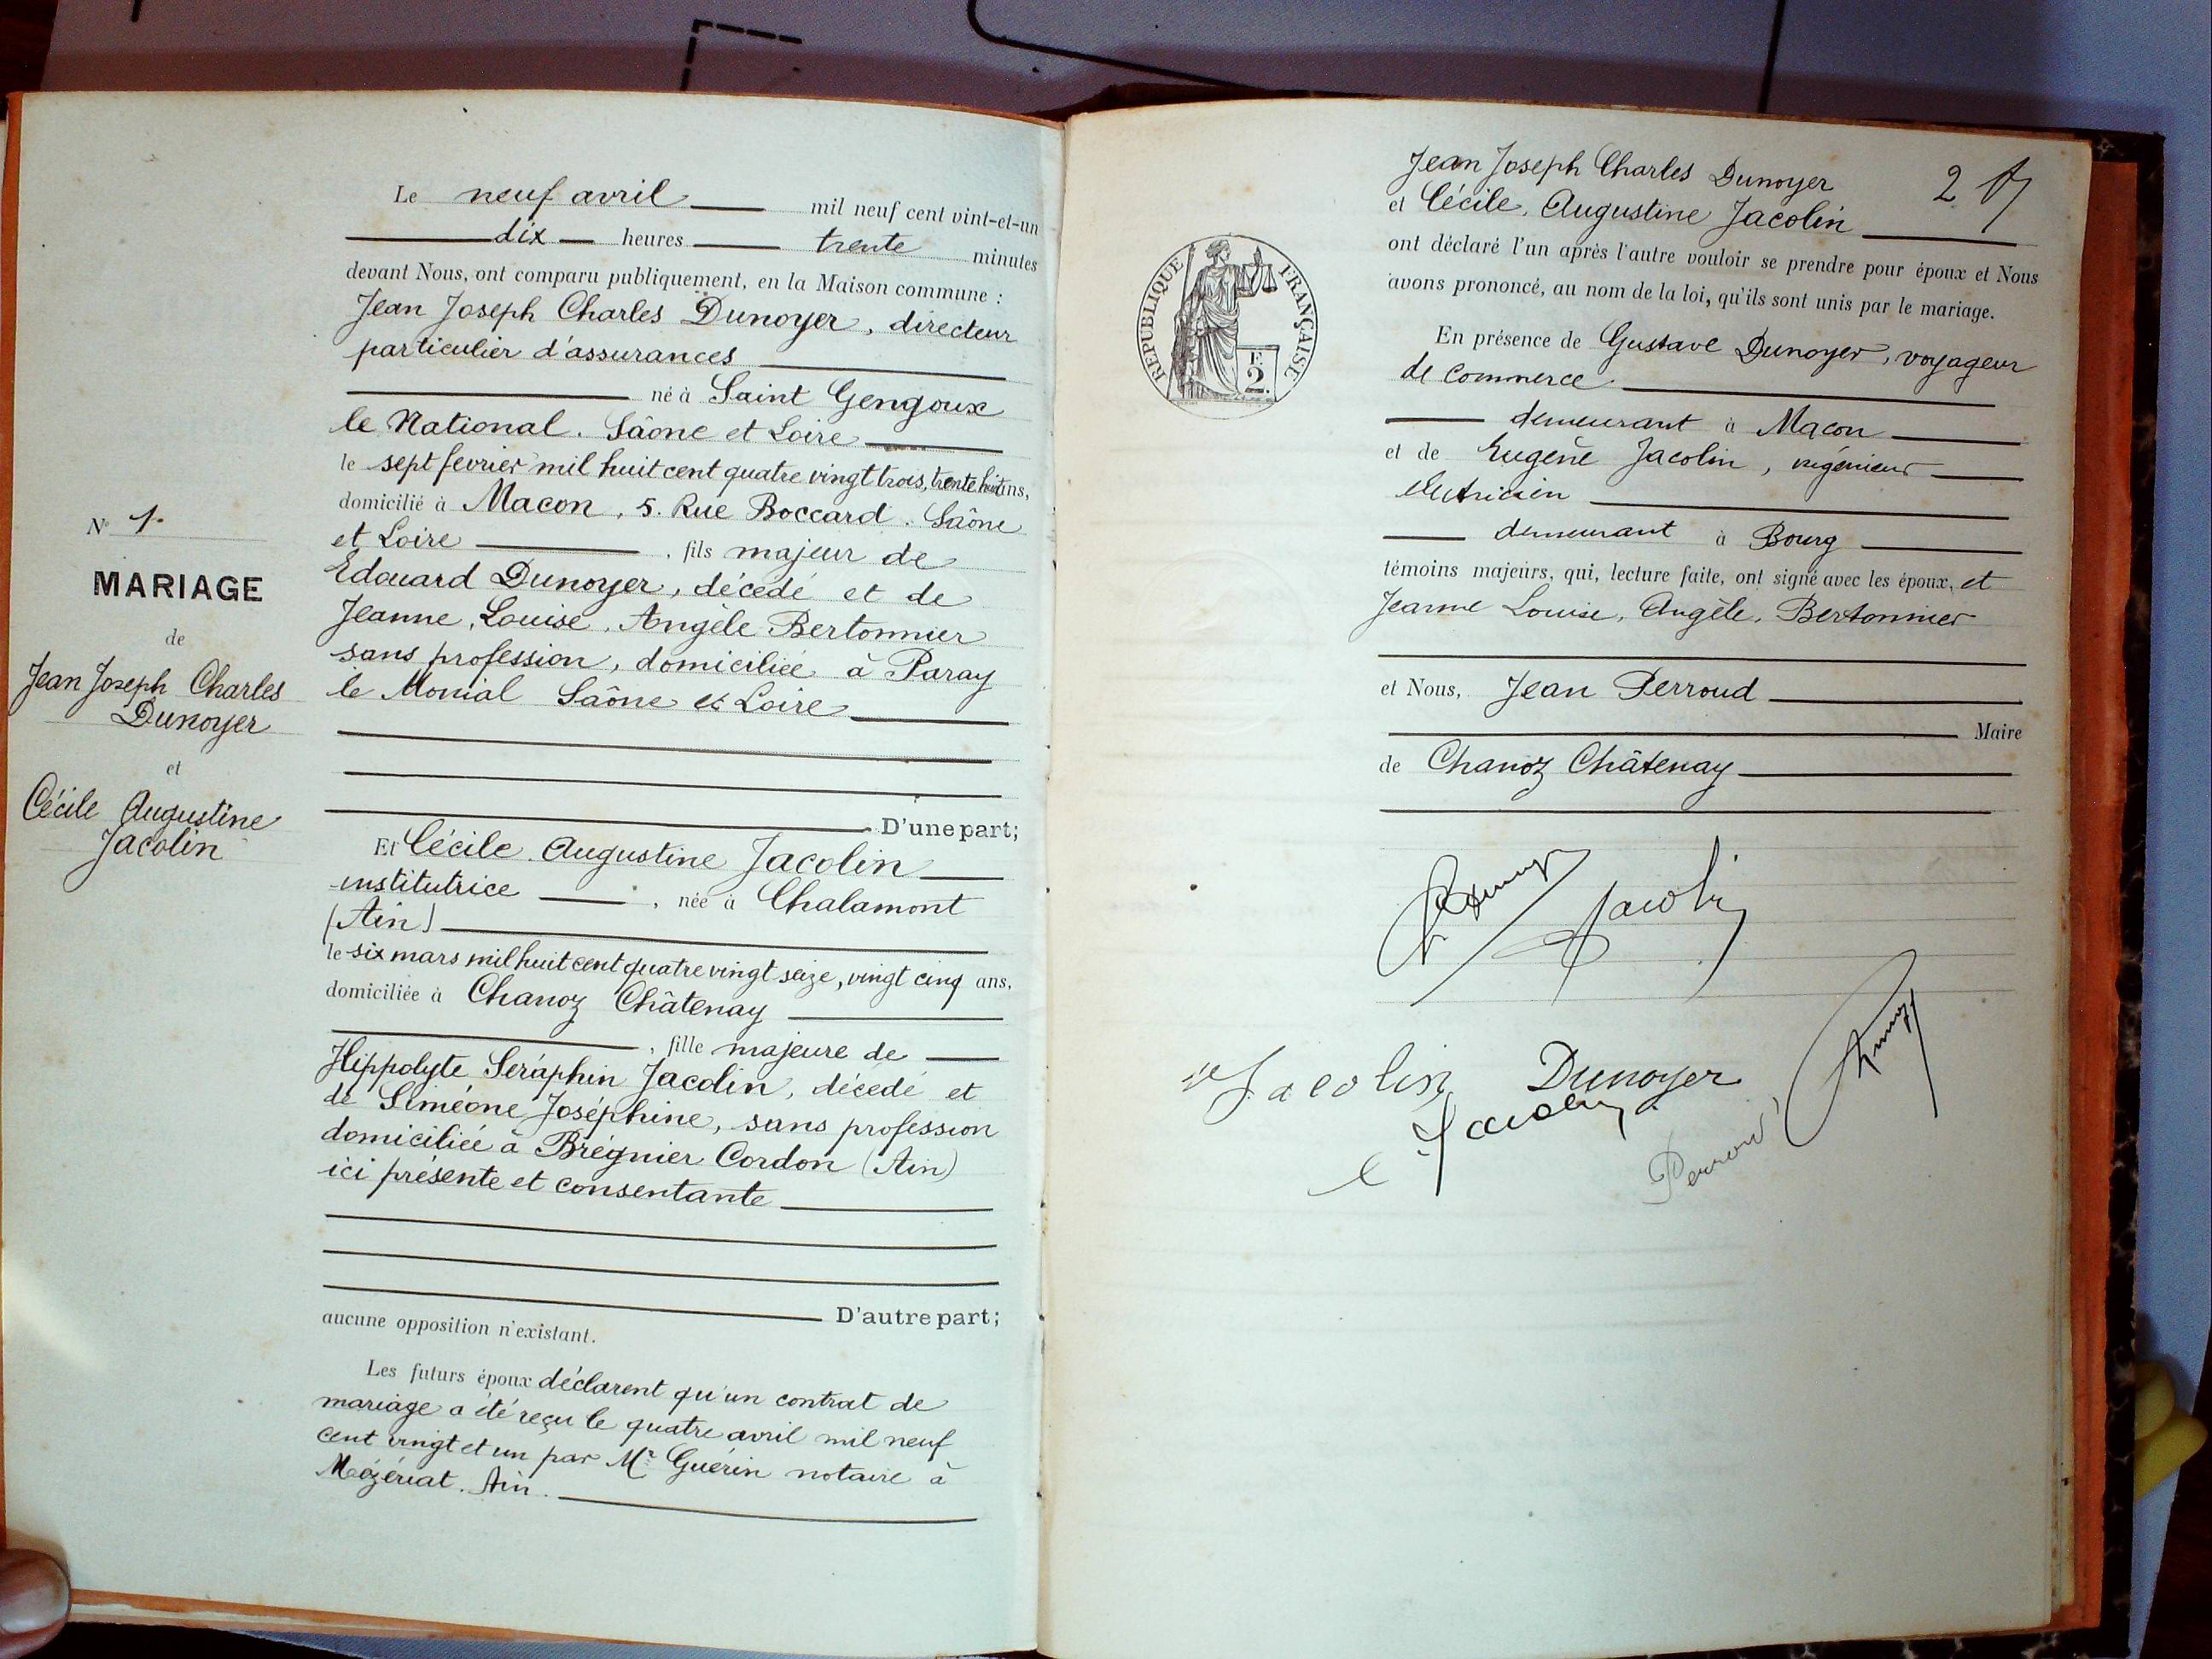 N° 1.
MARIAGE
de
Jean Joseph Charles
Dunoyer
et
Cécile Augustine
Jacolin
Le neuf avril mil neuf cent vint-et-un
dix heures trente minutes
devant Nous, ont comparu publiquement, en la Maison commune :
Jean Joseph Charles Dunoyer, directeur
particulier d'assurances
né à Saint Gengoux
le National. Saône et Loire
le sept fevrier mil huit cent quatre vingt trois, trente huit ans,
domicilié à Macon, 5. Rue Boccard. Saône
et Loire , fils majeur de
Edouard Dunoyer, décédé et de
Jeanne, Louise, Angèle Bertonnier
sans profession, domiciliée à Paray
le Monial Saône et Loire
D'une part;
Et Cécile Augustine Jacolin
institutrice , née à Chalamont
(Ain)
le six mars mil huit cent quatre vingt seize, vingt cinq ans,
domiciliée à Chanoz Châtenay
, fille majeure de
Hippolyte Séraphin Jacolin, décédé et
de Siméone Joséphine, sans profession
domiciliée à Brégnier Cordon (Ain)
ici présente et consentante
D'autre part;
aucune opposition n'existant.
Les futurs époux déclarent qu'un contrat de
mariage a été reçu le quatre avril mil neuf
cent vingt et un par Mr Guérin notaire à
Mézériat. Ain.
2
Jean Joseph Charles Dunoyer
et Cécile, Augustine Jacolin
ont déclaré l'un après l'autre vouloir se prendre pour époux et Nous
avons prononcé, au nom de la loi, qu'ils sont unis par le mariage.
RÉPUBLIQUE FRANÇAISE
F
2.
En présence de Gustave Dunoyer, voyageur
de commerce
demeurant à Macon
et de Eugène Jacolin, ingénieur
électricien
demeurant à Bourg
témoins majeurs, qui, lecture faite, ont signé avec les époux, et
Jeanne Louise, Angèle, Bertonnier
et Nous, Jean Perroud
Maire
de Chanoz Châtenay
Jacolin
Jacolin Dunoyer
Jacolin
Perroud